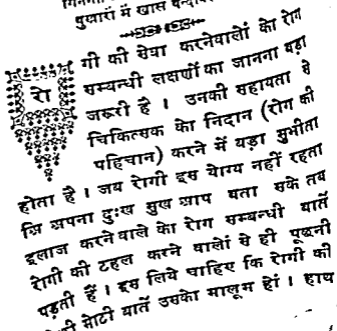 पुखारों में खास
रोगी की सेवा करनेवालों केा रोग
सम्बन्धी लक्षणों का जानना बड़ा
जरूरी है । उनकी सहायता से
चिकित्सक केा निदान (रोग की
पहिचान) करने में बड़ा सुभीता
होता है । जब रोगी इस येाग्य नहीं रहता
कि अपना दुःख सुख आप बता सके तब
इलाज करनेवाले का रोग सम्बन्धी बातें
रोगी की टहल करने वालों से ही पूछनी
पड़ती हैं । इस लिये चाहिए कि रोगी की
मोटी बातें उसकेा मालूम हों । हाथ